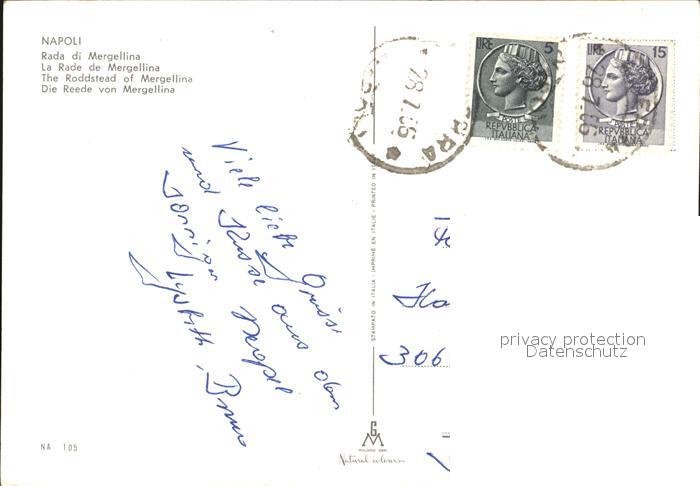 NAPOLI
Rada di Mergellina
La Rade de Mergellina
The Roddstead of Mergellina
Die Reede von Mergellina
LIRE 5
POSTE
REPVBBLICA
ITALIANA
LIRE 15
POSTE
REPVBBLICA
ITALIANA
28.7.66
Viele liebe Grüsse
und Küsse aus dem
sonnigen Neapel
Bruno
STAMPATO IN ITALIA - IMPRIMÉ EN ITALIE - PRINTED IN
Ha
306
privacy protection
Datenschutz
NA 105
GM
MILANO
Natural colours